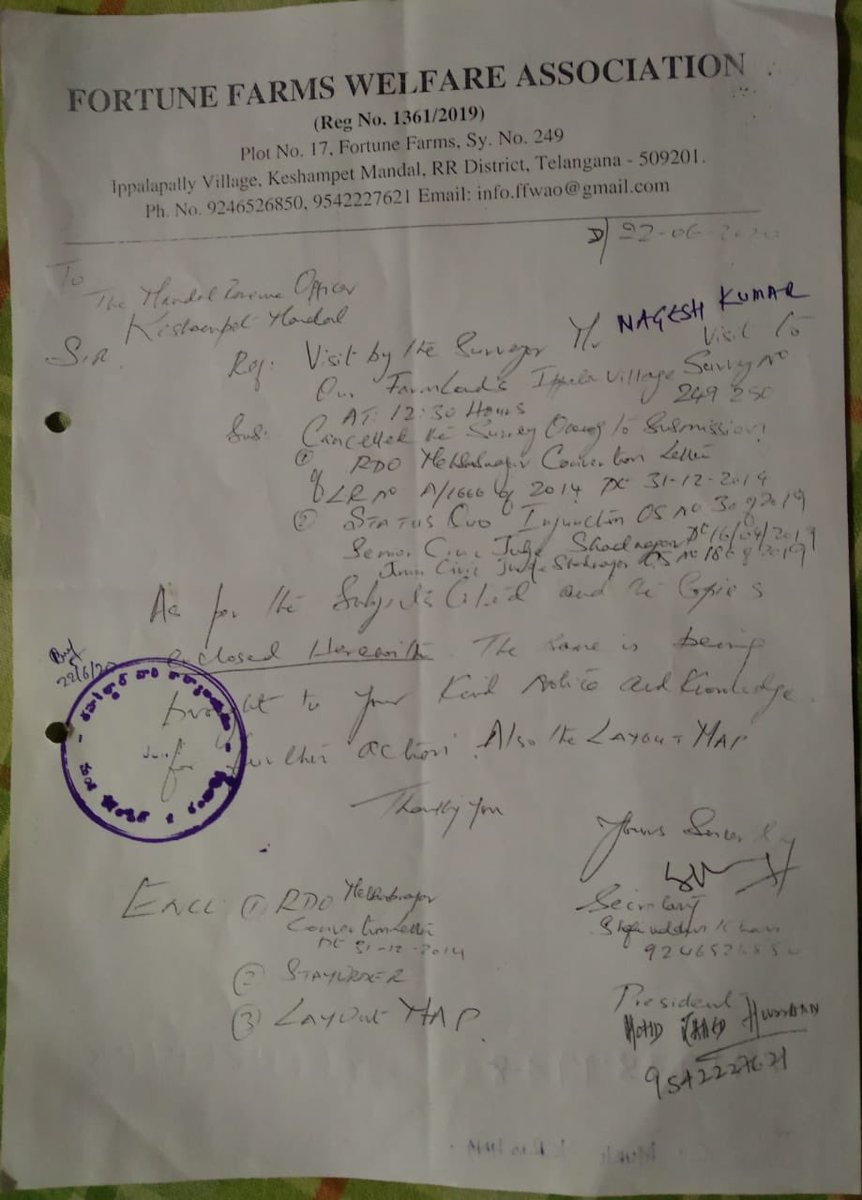 FORTUNE FARMS WELFARE ASSOCIATION
(Reg No. 1361/2019)
Plot No. 17, Fortune Farms, Sy. No. 249
Ippalapally Village, Keshampet Mandal, RR District, Telangana - 509201.
Ph. No. 9246526850, 9542227621 Email: info.ffwao@gmail.com
D/ 22-06-2020
To
The Mandal Officer
Mandal
Sir
Ref: Visit by the Surveyor Mr NAGESH KUMAR Visit to
Our Village Survey No
249 250
AT 12:30 Hours
Sub: Cancelled the Survey Owing to Submission
① RDO Letter
of LR No A/1666 of 2014 Dt 31-12-2014
② STATUS QUO Injunction OS No 30 of 2019
Senior Civil Judge Shadnagar Dt 16/04/2019
Civil Judge OS No of 2019
As per the Subjects Cited and the Copies
enclosed Herewith. The same is being
brought to your Kind Notice and Knowledge
for further action. Also the LAYOUT MAP
22/6/20
Thanking You
Yours
Secretary
Khan
President
MOHD HUSSAIN
9542227621
ENCL: ① RDO
Letter
Dt 31-12-2014
② STAYORDER
③ LAYOUT MAP.